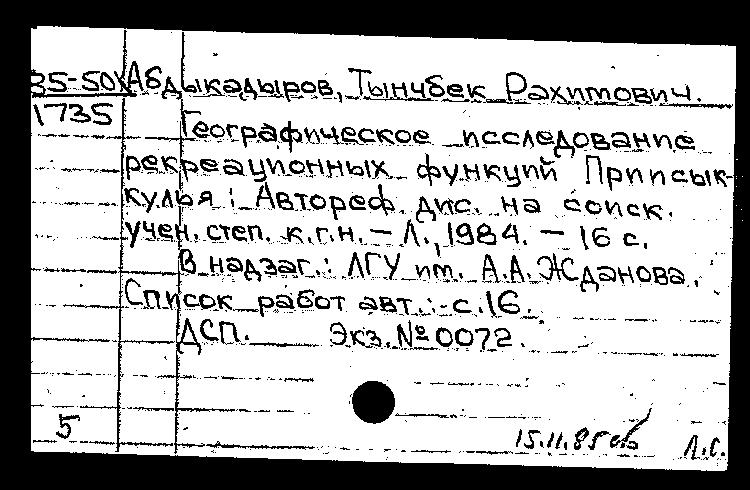 85-50\ Абдыкадыров, Тынчбек Рахитович.
1735 Географическое исследование
рекреационных функций Приисык-
кулья : Автореф. дис. на соиск.
учен. степ. к.г.н. – Л., 1984. – 16 с.
В надзаг.: ЛГУ им. А.А. Жданова.
Список работ авт.: с. 16.
ДСП. Экз. № 0072.
5 15.11.85 Л.С.